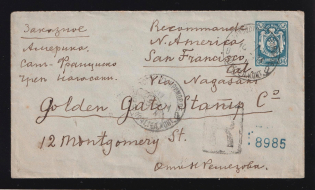 Заказное
Recommandé
Америка,
N. America
Санъ Франциско
San Francisco,
Cal.
чрез Нагасаки
Via Nagasaki
Golden Gate Stamp Cº
12 Montgomery St.
R
8985